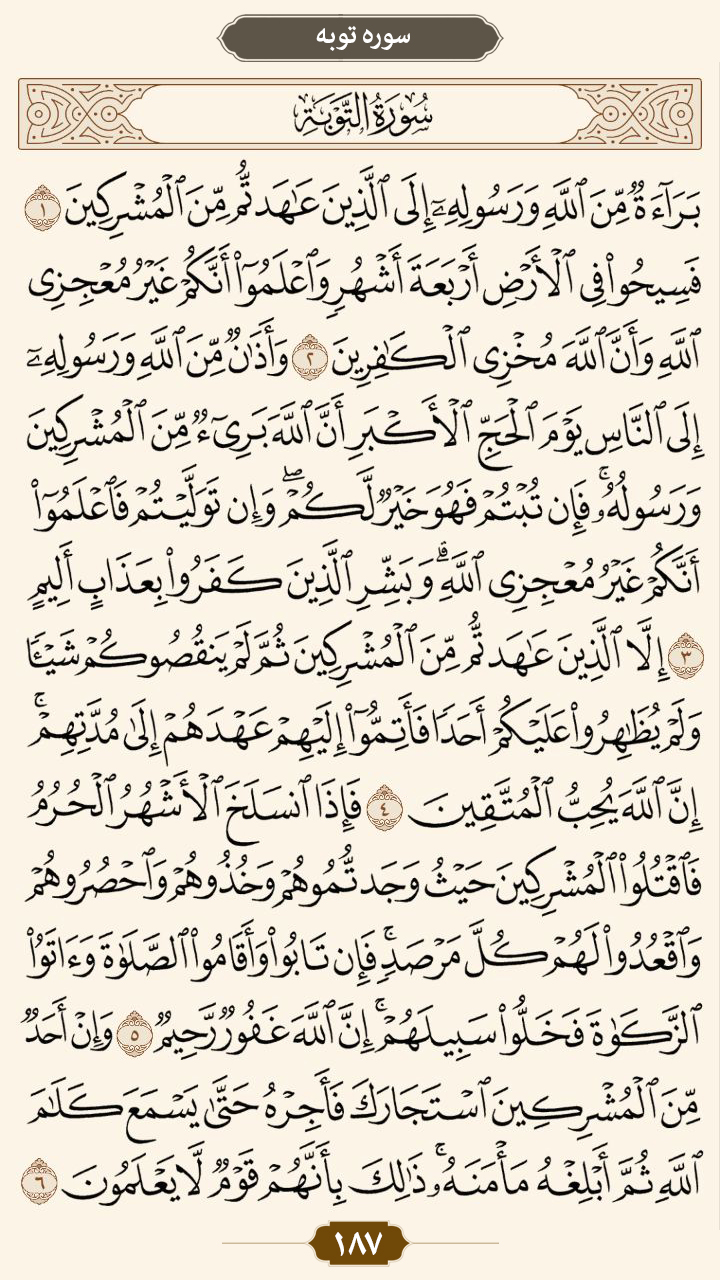 سوره توبه
سُورَةُ التَّوْبَةِ
بَرَآءَةٌ مِّنَ ٱللَّهِ وَرَسُولِهِۦٓ إِلَى ٱلَّذِينَ عَٰهَدتُّم مِّنَ ٱلْمُشْرِكِينَ ١
فَسِيحُوا۟ فِى ٱلْأَرْضِ أَرْبَعَةَ أَشْهُرٍ وَٱعْلَمُوٓا۟ أَنَّكُمْ غَيْرُ مُعْجِزِى
ٱللَّهِ وَأَنَّ ٱللَّهَ مُخْزِى ٱلْكَٰفِرِينَ ٢ وَأَذَٰنٌ مِّنَ ٱللَّهِ وَرَسُولِهِۦٓ
إِلَى ٱلنَّاسِ يَوْمَ ٱلْحَجِّ ٱلْأَكْبَرِ أَنَّ ٱللَّهَ بَرِىٓءٌ مِّنَ ٱلْمُشْرِكِينَ
وَرَسُولُهُۥ ۚ فَإِن تُبْتُمْ فَهُوَ خَيْرٌ لَّكُمْ ۖ وَإِن تَوَلَّيْتُمْ فَٱعْلَمُوٓا۟
أَنَّكُمْ غَيْرُ مُعْجِزِى ٱللَّهِ ۗ وَبَشِّرِ ٱلَّذِينَ كَفَرُوا۟ بِعَذَابٍ أَلِيمٍ
٣ إِلَّا ٱلَّذِينَ عَٰهَدتُّم مِّنَ ٱلْمُشْرِكِينَ ثُمَّ لَمْ يَنقُصُوكُمْ شَيْـًٔا
وَلَمْ يُظَٰهِرُوا۟ عَلَيْكُمْ أَحَدًا فَأَتِمُّوٓا۟ إِلَيْهِمْ عَهْدَهُمْ إِلَىٰ مُدَّتِهِمْ ۚ
إِنَّ ٱللَّهَ يُحِبُّ ٱلْمُتَّقِينَ ٤ فَإِذَا ٱنسَلَخَ ٱلْأَشْهُرُ ٱلْحُرُمُ
فَٱقْتُلُوا۟ ٱلْمُشْرِكِينَ حَيْثُ وَجَدتُّمُوهُمْ وَخُذُوهُمْ وَٱحْصُرُوهُمْ
وَٱقْعُدُوا۟ لَهُمْ كُلَّ مَرْصَدٍ ۚ فَإِن تَابُوا۟ وَأَقَامُوا۟ ٱلصَّلَوٰةَ وَءَاتَوُا۟
ٱلزَّكَوٰةَ فَخَلُّوا۟ سَبِيلَهُمْ ۚ إِنَّ ٱللَّهَ غَفُورٌ رَّحِيمٌ ٥ وَإِنْ أَحَدٌ
مِّنَ ٱلْمُشْرِكِينَ ٱسْتَجَارَكَ فَأَجِرْهُ حَتَّىٰ يَسْمَعَ كَلَٰمَ
ٱللَّهِ ثُمَّ أَبْلِغْهُ مَأْمَنَهُۥ ۚ ذَٰلِكَ بِأَنَّهُمْ قَوْمٌ لَّا يَعْلَمُونَ ٦
١٨٧